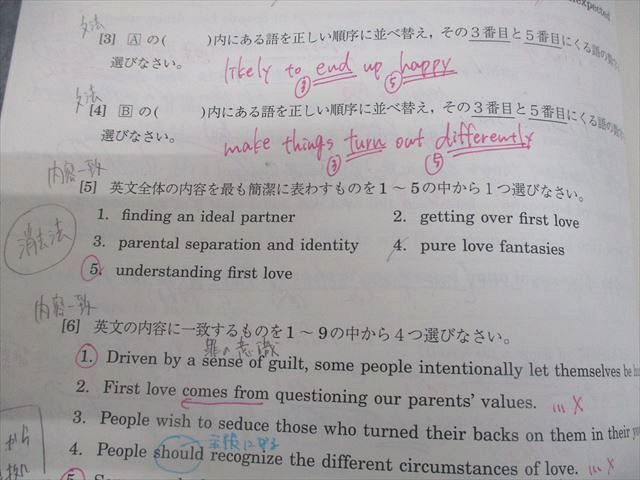 expected
文法
[3] Aの( )内にある語を正しい順序に並べ替え，その3番目と5番目にくる語の
選びなさい。
likely to end up happy
③ ⑤
文法
[4] Bの( )内にある語を正しい順序に並べ替え，その3番目と5番目にくる語の
選びなさい。
make things turn out differently
③ ⑤
内容一致
[5] 英文全体の内容を最も簡潔に表わすものを1～5の中から1つ選びなさい。
消去法
1. finding an ideal partner 2. getting over first love
3. parental separation and identity 4. pure love fantasies
5. understanding first love
内容一致
[6] 英文の内容に一致するものを1～9の中から4つ選びなさい。
罪の意識
1. Driven by a sense of guilt, some people intentionally let themselves be
2. First love comes from questioning our parents' values. ... ×
3. People wish to seduce those who turned their backs on them in their
4. People should recognize the different circumstances of love. ... ×
から
5.